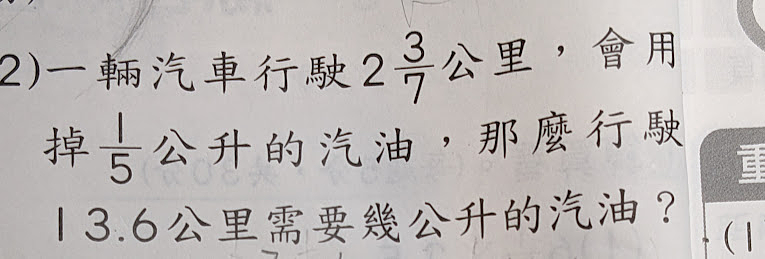 2)一輛汽車行駛2 3/7 公里，會用
掉 1/5 公升的汽油，那麼行駛
13.6公里需要幾公升的汽油？
重
(1